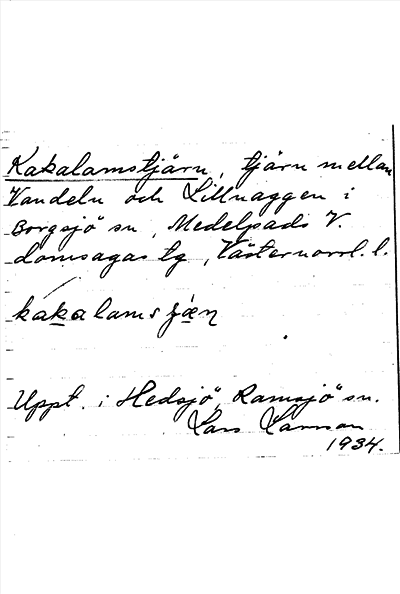 Kakalamstjärn, tjärn mellan
Vandeln och Lillnaggen i
Borgsjö sn, Medelpads V.
domsagas tg, Västernorrl. l.
kakalamsʃæ̀η
Uppt. i Hedsjö, Ramsjö sn.
Lars Larsson
1934.